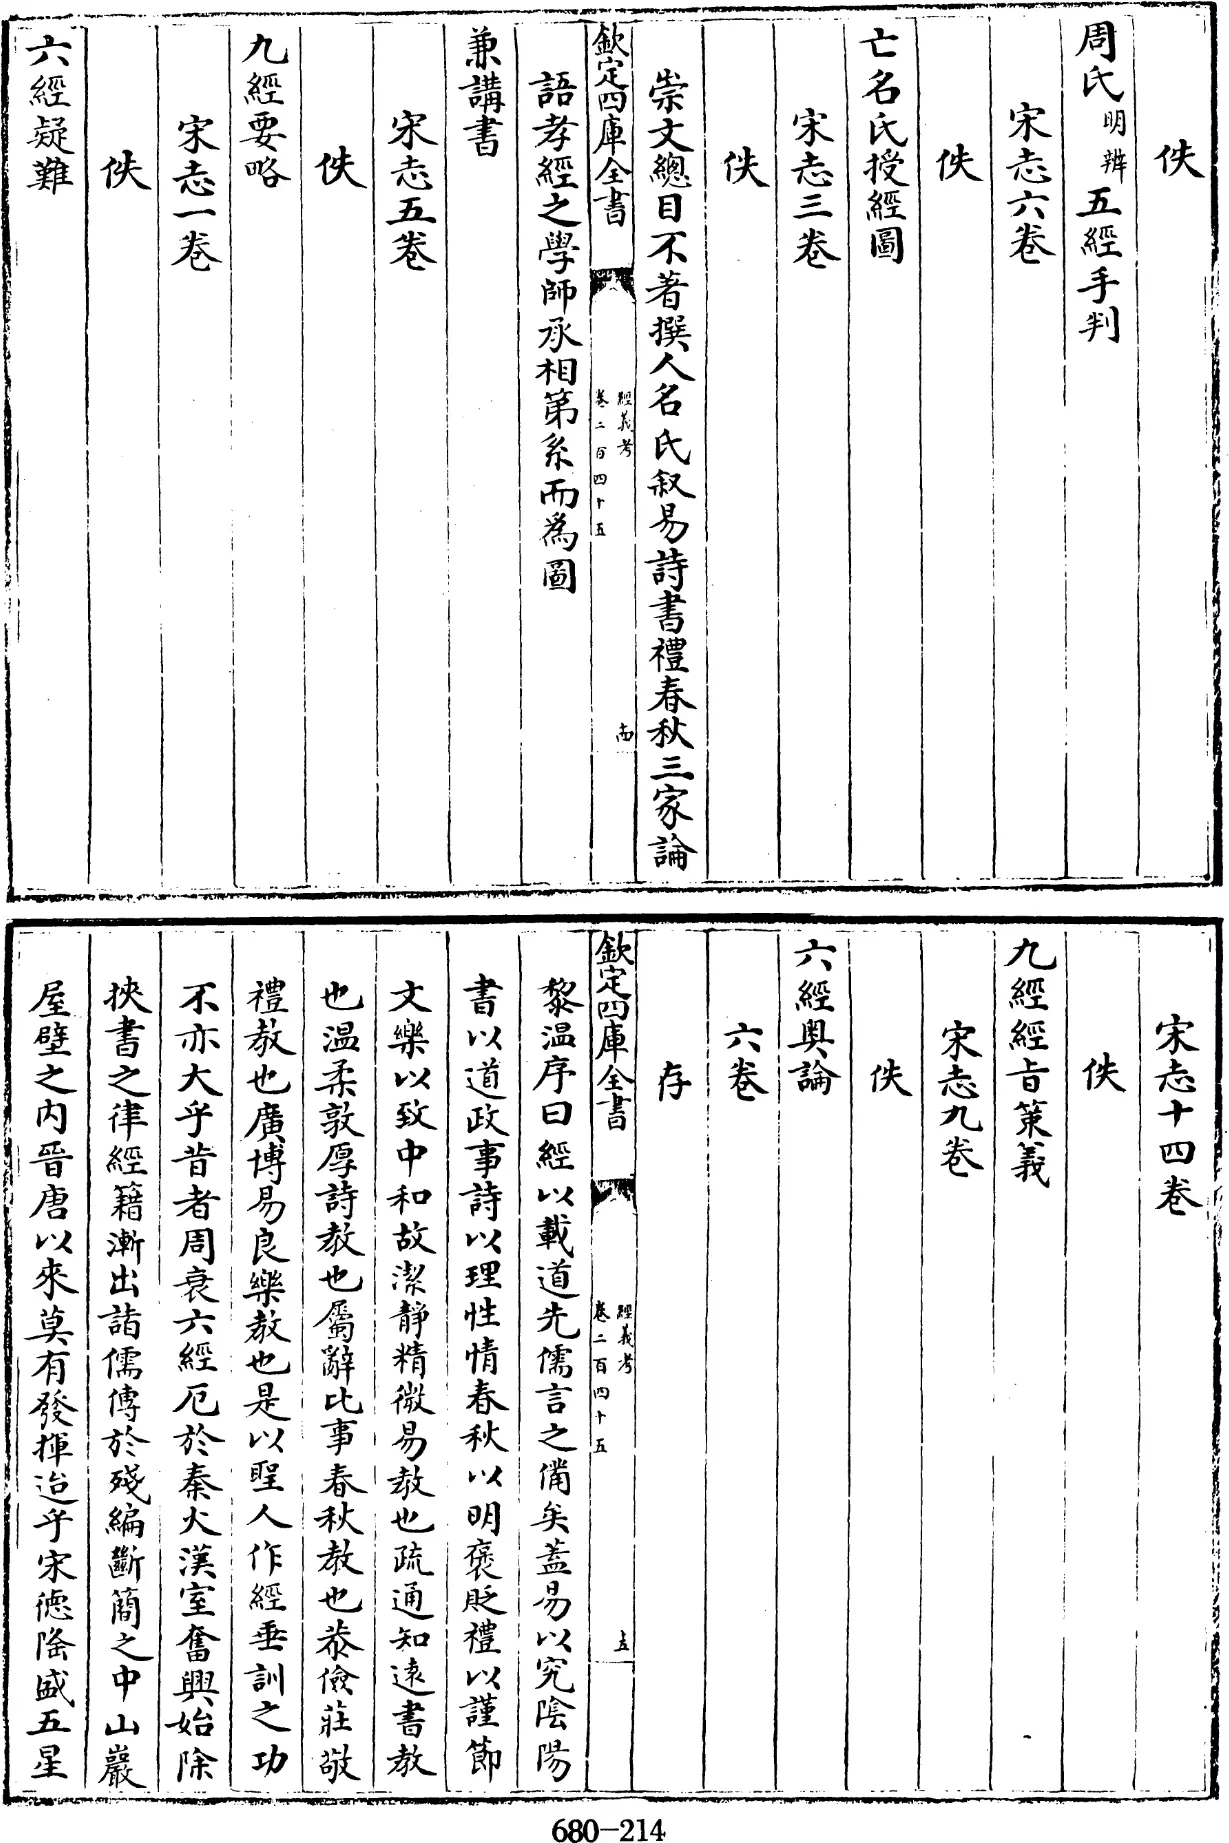 佚
周氏明辨五經手判
宋志六卷
佚
亡名氏授經圖
宋志三卷
佚
崇文總目不著撰人名氏叙易詩書禮春秋三家論
欽定四庫全書
經義考
卷二百四十五
語孝經之學師承相第系而為圖
兼講書
宋志五卷
佚
九經要略
宋志一卷
佚
六經疑難
宋志十四卷
佚
九經經旨策義
宋志九卷
佚
六經奥論
六卷
存
欽定四庫全書
經義考
卷二百四十五
黎温序曰經以載道先儒言之備矣蓋易以究陰陽
書以道政事詩以理性情春秋以明褒貶禮以謹節
文樂以致中和故潔静精微易教也疏通知逺書教
也温柔敦厚詩教也屬辭比事春秋教也恭儉莊敬
禮教也廣博易良樂教也是以聖人作經垂訓之功
不亦大乎昔者周衰六經厄於秦火漢室奮興始除
挾書之律經籍漸出諸儒傳於殘編斷簡之中山巖
屋壁之内晉唐以來莫有發揮迨乎宋德隆盛五星
680-214